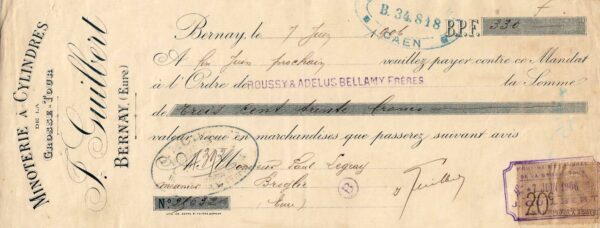 MINOTERIE A CYLINDRES
DE LA
GROSSE-TOUR
J. Guilbert
BERNAY. (Eure)
B. 34.818
CAEN
Bernay, le 7 Juin B.P.F. 330
A fin Juin prochain veuillez payer contre ce Mandat
à l'Ordre de ROUSSY & ADELUS BELLAMY FRÈRES la Somme
de Trois cent trente francs
valeur reçue en marchandises que passerez suivant avis
A Monsieur Paul Legray
Broglie
(Eure)
B
J Guilbert
No 21632
20c